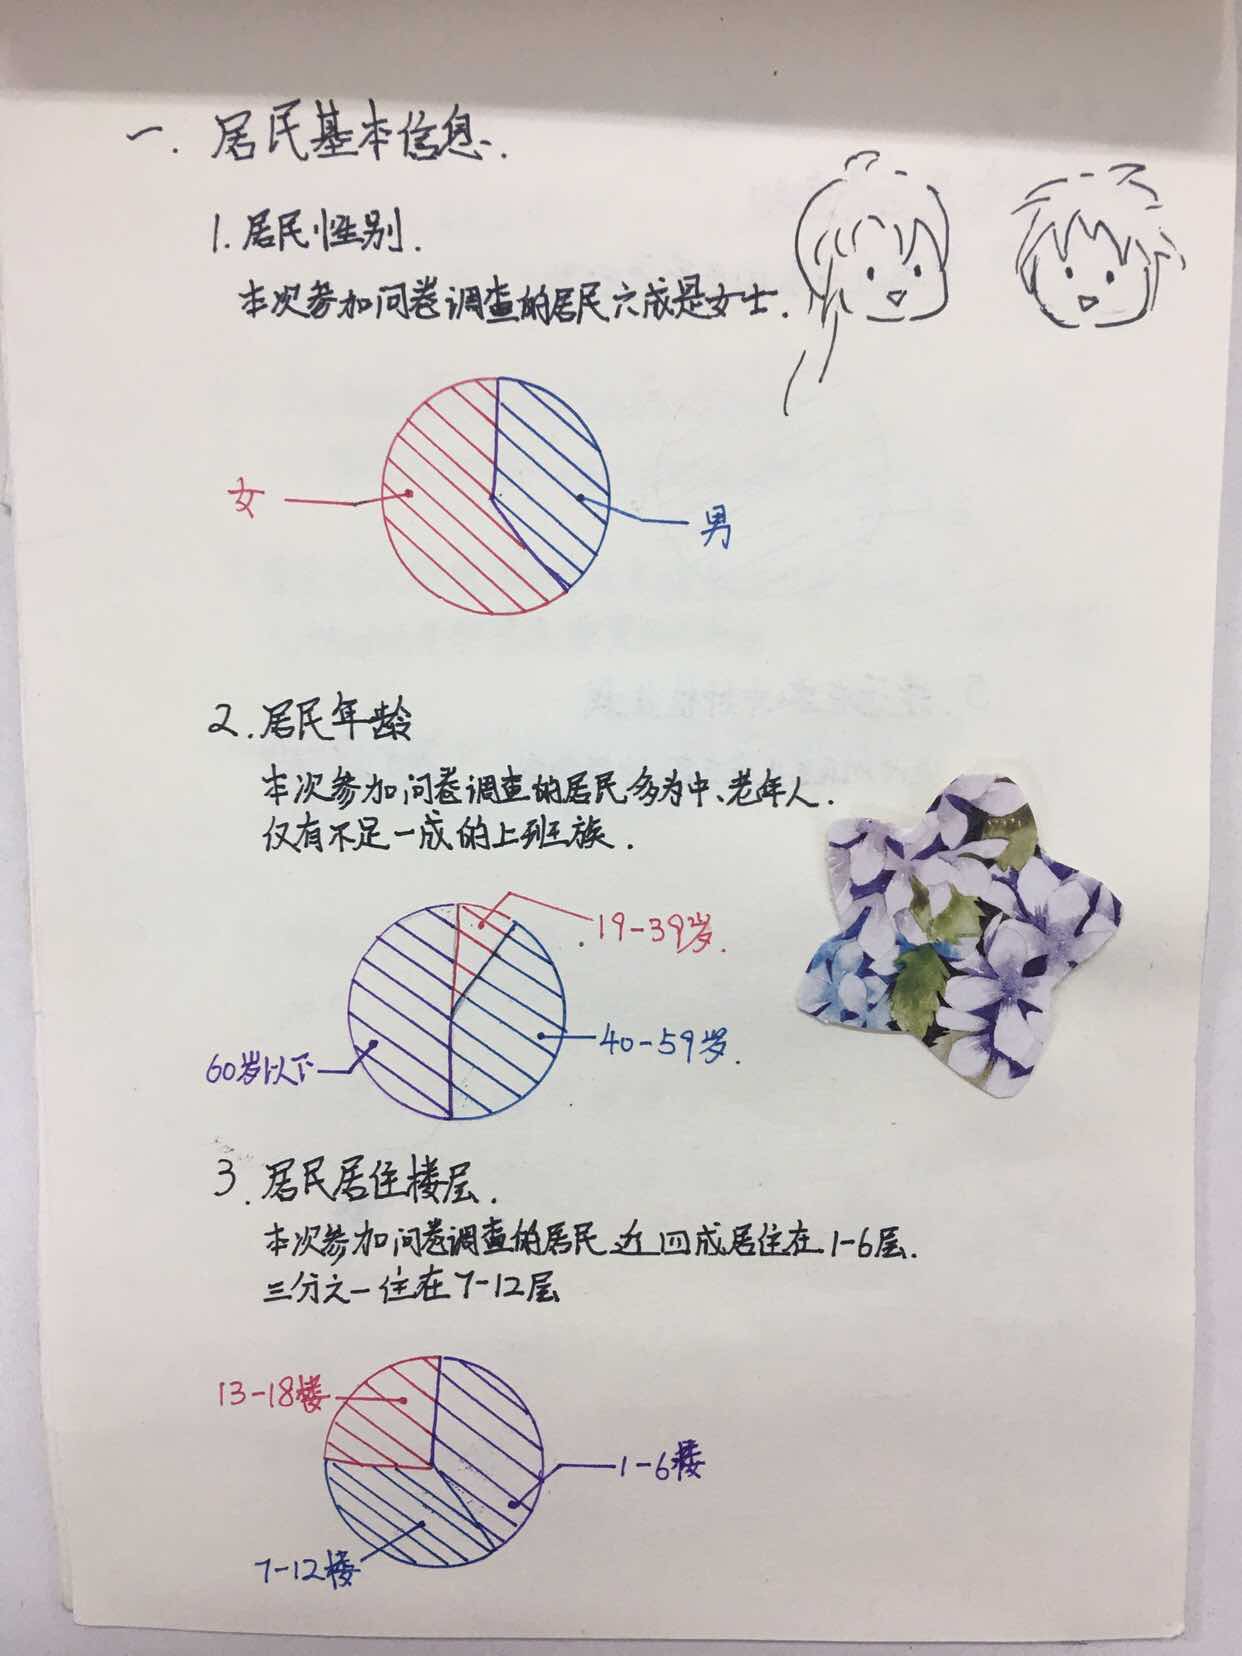 一. 居民基本信息.
1. 居民性别.
本次参加问卷调查的居民六成是女士.
女
男
2. 居民年龄
本次参加问卷调查的居民多为中、老年人.
仅有不足一成的上班族.
19-39岁.
40-59岁.
60岁以下
3. 居民居住楼层.
本次参加问卷调查的居民近四成居住在1-6层.
三分之一住在7-12层
13-18楼
1-6楼
7-12楼